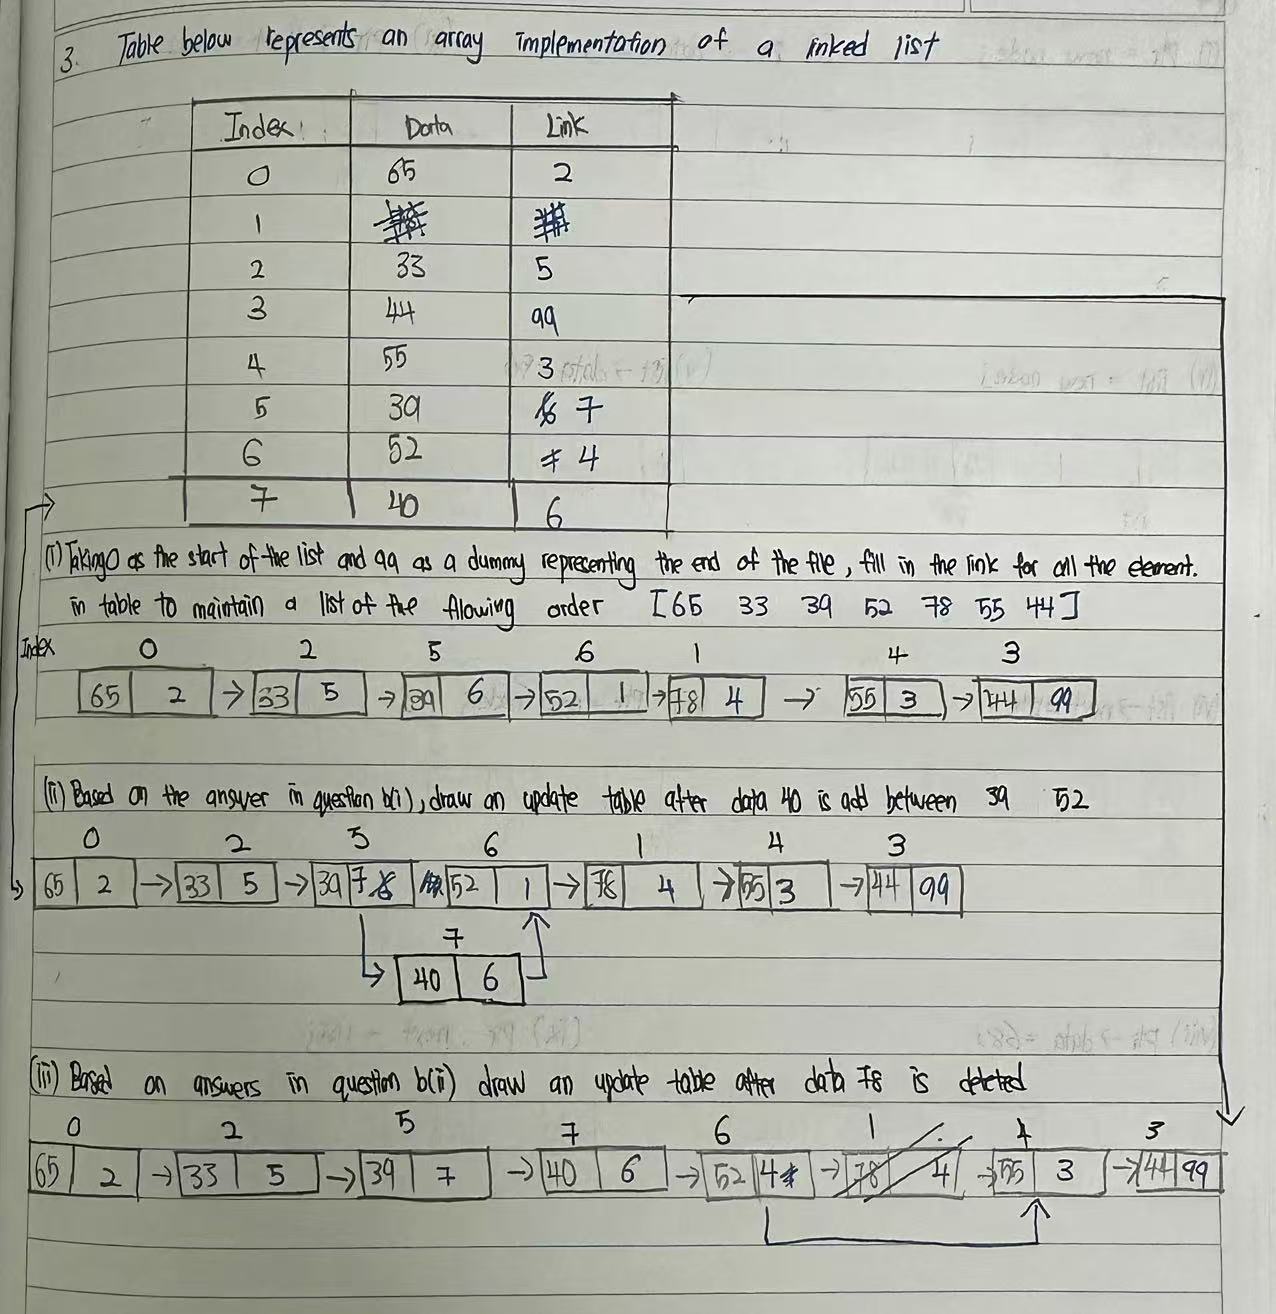 3. Table below represents an array implementation of a inked list
Index Data Link
0 65 2
1
2 33 5
3 44 99
4 55 3
5 39 7
6 52 4
7 40 6
(i) Taking 0 as the start of the list and 99 as a dummy representing the end of the file, fill in the link for all the element.
in table to maintain a list of the flowing order [65 33 39 52 78 55 44]
Index 0 2 5 6 1 4 3
65 2 → 33 5 → 39 6 → 52 1 → 78 4 → 55 3 → 44 99
(ii) Based on the answer in question b(i), draw an update table after data 40 is add between 39 52
0 2 5 6 1 4 3
65 2 → 33 5 → 39 7 6 52 1 → 78 4 → 55 3 → 44 99
7
40 6
(iii) Based on answers in question b(ii) draw an update table after data 78 is deleted
0 2 5 7 6 1 4 3
65 2 → 33 5 → 39 7 → 40 6 → 52 4 → 78 4 → 55 3 → 44 99